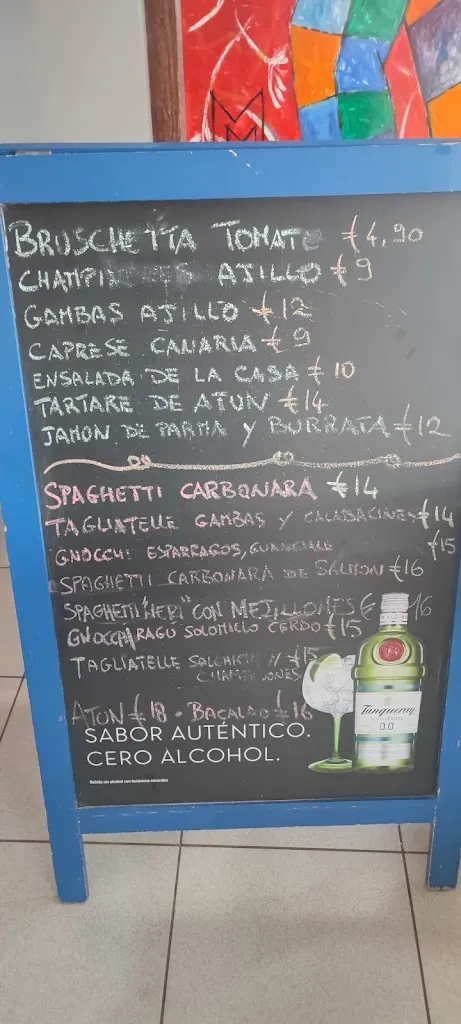 BRUSCHETTA TOMATE €4,90
CHAMPIÑONES AJILLO €9
GAMBAS AJILLO €12
CAPRESE CANARIA €9
ENSALADA DE LA CASA €10
TARTARE DE ATUN €14
JAMON DE PARMA Y BURRATA €12
SPAGHETTI CARBONARA €14
TAGLIATELLE GAMBAS Y CALABACINES €14
GNOCCHI ESPARRAGOS, GUANCIALE €15
SPAGHETTI CARBONARA DE SALMON €16
SPAGHETTI "NERI" CON MEJILLONES € 16
GNOCCHI RAGU SOLOMILLO CERDO €15
TAGLIATELLE SALCHICHA Y €15
CHAMPIÑONES
ATUN €18 • BACALAO €16
SABOR AUTÉNTICO.
CERO ALCOHOL.
Tanqueray
0.0